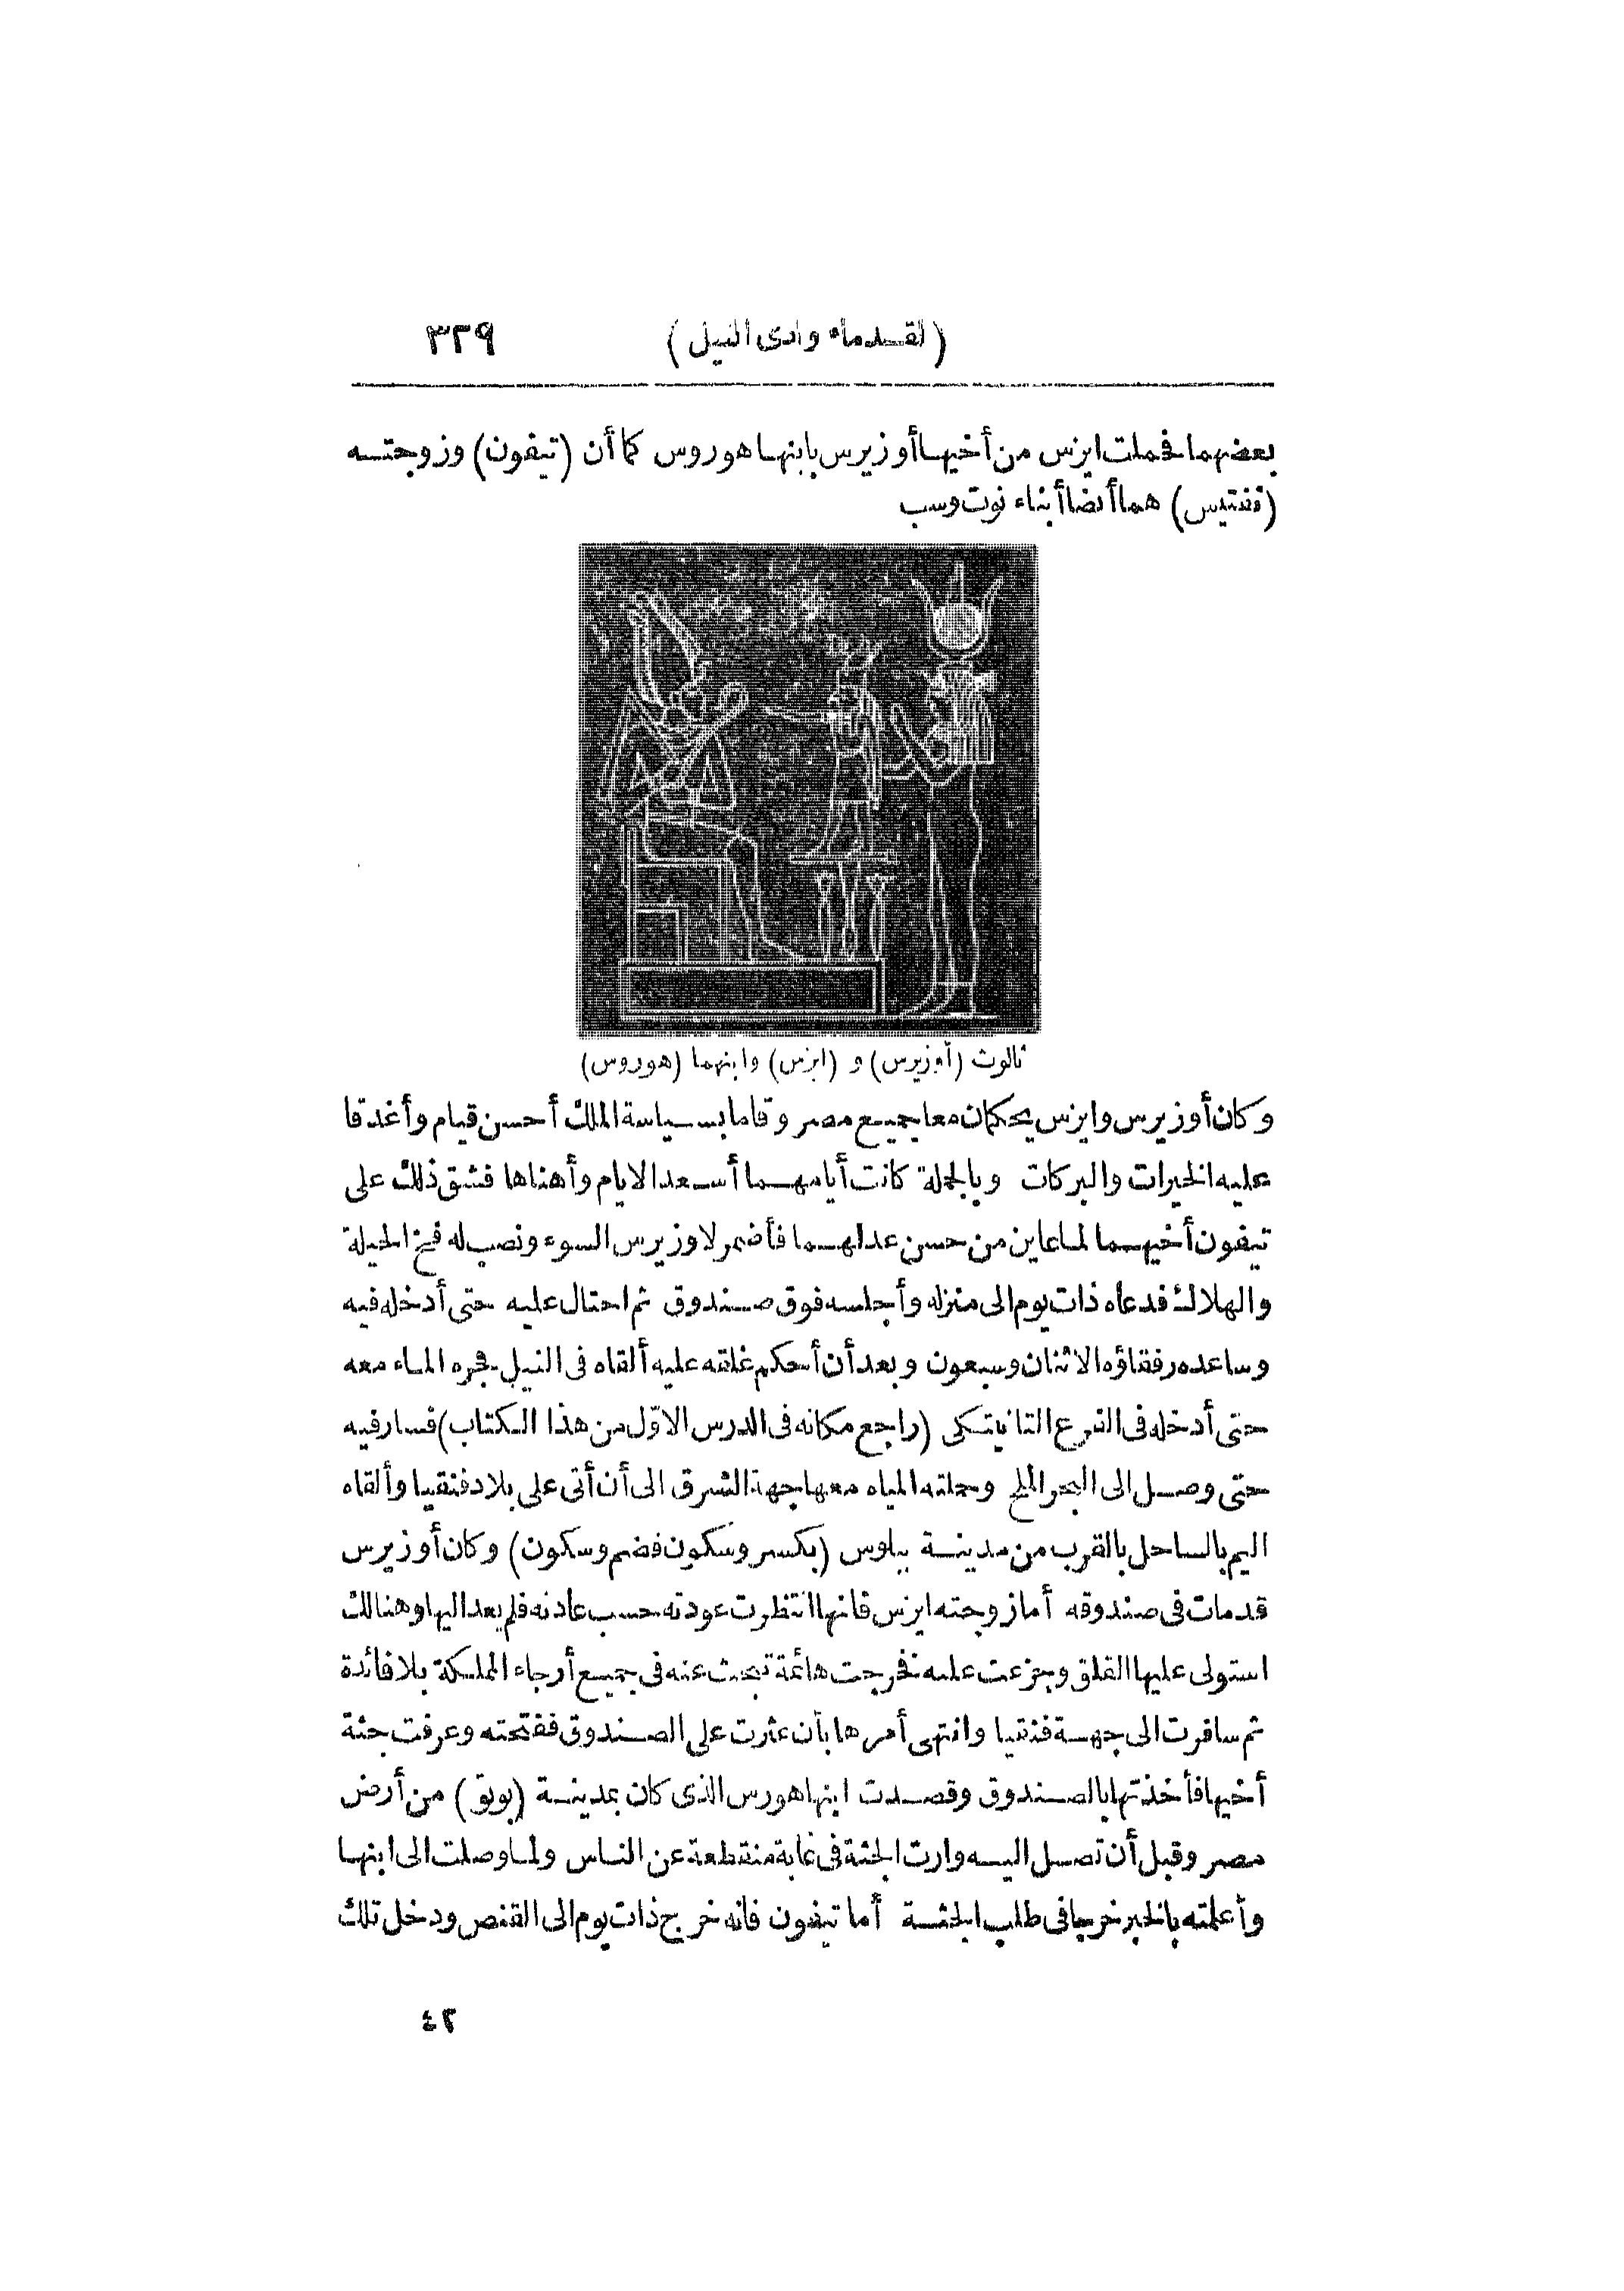 (لقدماء وادى النيل) ٣٢٩
بعضهما فحملت ايزس من أخيها أوزيرس بابنها هوروس كما أن (تيفون) وزوجته
(نفتيس) هما أيضا أبناء نوت وسب
ثالوث (أوزيرس) و (ايزس) وابنهما (هوروس)
وكان أوزيرس وايزس يحكمان معا جميع مصر وقاما بسياسة الملك أحسن قيام وأغدقا
عليه الخيرات والبركات وبالجملة كانت أيامهما أسعد الايام وأهناها فشق ذلك على
تيفون أخيهما لما عاين من حسن عدلهما فأضمر لاوزيرس السوء ونصب له فخ الحيلة
والهلاك فدعاه ذات يوم الى منزله وأجلسه فوق صندوق ثم احتال عليه حتى أدخله فيه
وساعده رفقاؤه الاثنان وسبعون وبعد أن أحكم غلقه عليه ألقاه فى النيل فجره الماء معه
حتى أدخله فى الفرع التانيتكى (راجع مكانه فى الدرس الاوّل من هذا الكتاب) فسار فيه
حتى وصل الى البحر الملح وحملته المياه معها جهة الشرق الى أن أتى على بلاد فنقيا وألقاه
اليم بالساحل بالقرب من مدينة ببلوس (بكسر وسكون فضم وسكون) وكان أوزيرس
قد مات فى صندوقه أما زوجته ايزس فانها انتظرت عودته حسب عادته فلم يعد اليها وهنالك
استولى عليها القلق وجزعت عليه فخرجت هائمة تبحث عنه فى جميع أرجاء المملكة بلا فائدة
ثم سافرت الى جهة فنقيا وانتهى أمرها بأن عثرت على الصندوق ففتحته وعرفت جثة
أخيها فأخذتها بالصندوق وقصدت ابنها هورس الذى كان بمدينة (بوتو) من أرض
مصر وقبل أن تصل اليه وارت الجثة فى غابة منقطعة عن الناس ولما وصلت الى ابنها
وأعلمته بالخبر خرجا فى طلب الجثة أما تيفون فانه خرج ذات يوم الى القنص ودخل تلك
٤٢